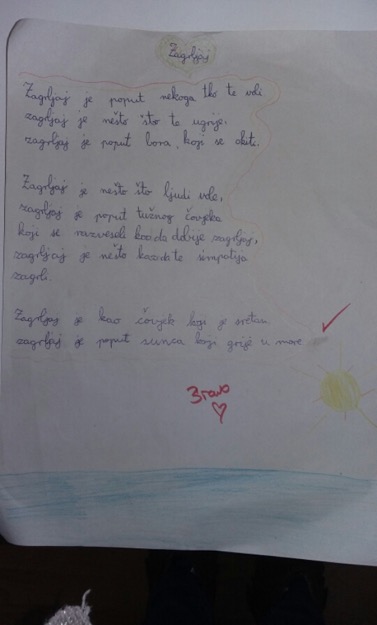 Zagrljaj
Zagrljaj je poput nekoga tko te voli
zagrljaj je nešto što te ugrije.
zagrljaj je poput bora, koji se okiti.
Zagrljaj je nešto što ljudi vole,
zagrljaj je poput tužnog čovjeka
koji se razveseli kada dobije zagrljaj,
zagrljaj je nešto kao da te simpatija
zagrli.
Zagrljaj je kao čovjek koji je sretan.
zagrljaj je poput sunca koji grije u more
Bravo